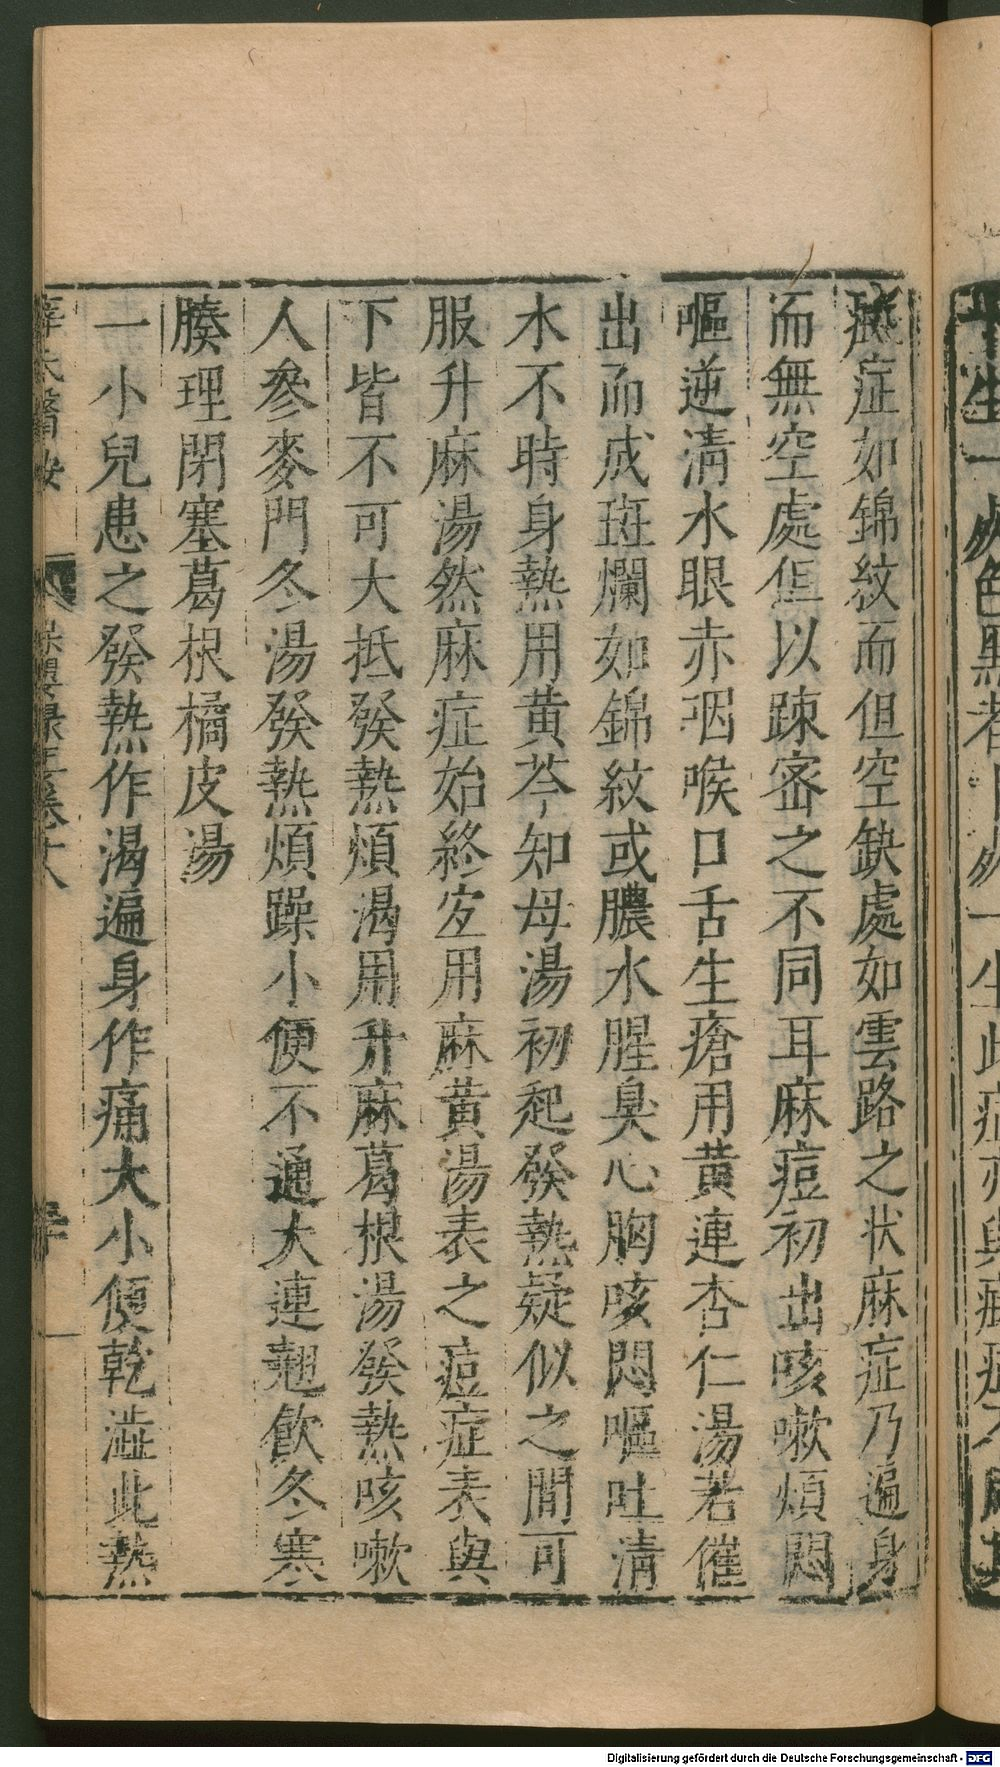 症如錦紋而但空缺處如雲路之状麻症乃遍身
而無空處但以踈宻之不同耳麻痘初出咳嗽煩悶
嘔逆清水眼赤咽喉口舌生瘡用黄連杏仁湯若催
出而成斑爛如錦紋或膿水腥臭心胸咳悶嘔吐清
水不時身熱用黄芩知母湯初起發熱疑似之間可
服升麻湯然麻症始終宐用麻黄湯表之痘症表與
下皆不可大抵發熱煩渴用升麻葛根湯發熱咳嗽
人參麥門冬湯發熱煩躁小便不通大連翹飲冬寒
腠理閉塞葛根橘皮湯
一小兒患之發熱作渴遍身作痛大小便乾澁此熱
薛氏醫按
保嬰
Digitalisierung gefördert durch die Deutsche Forschungsgemeinschaft - DFG